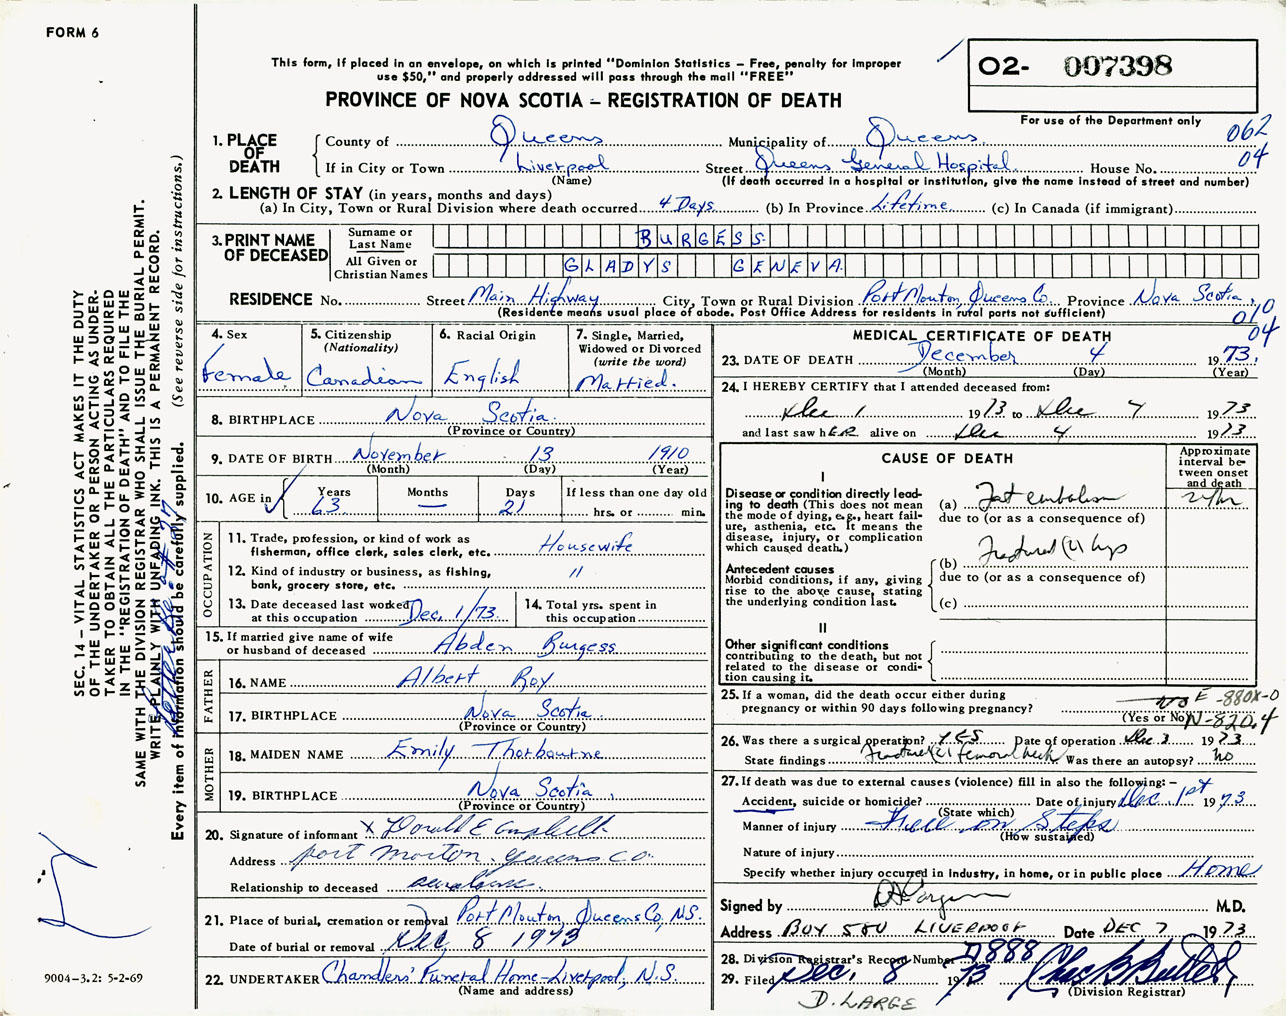 FORM 6
This form, if placed in an envelope, on which is printed "Dominion Statistics – Free, penalty for improper
use $50," and properly addressed will pass through the mail "FREE"
PROVINCE OF NOVA SCOTIA – REGISTRATION OF DEATH
02- 007398
For use of the Department only
062
04
1. PLACE OF DEATH
County of Queens Municipality of Queens
If in City or Town Liverpool Street Queens General Hospital House No.
(Name) (If death occurred in a hospital or institution, give the name instead of street and number)
2. LENGTH OF STAY (in years, months and days)
(a) In City, Town or Rural Division where death occurred 4 Days (b) In Province Lifetime (c) In Canada (if immigrant)
3. PRINT NAME OF DECEASED
Surname or Last Name BURGESS
All Given or Christian Names GLADYS GENEVA
RESIDENCE No. Street Main Highway City, Town or Rural Division Port Mouton, Queens Co. Province Nova Scotia
(Residence means usual place of abode. Post Office Address for residents in rural parts not sufficient)
010
04
4. Sex
Female
5. Citizenship
(Nationality)
Canadian
6. Racial Origin
English
7. Single, Married,
Widowed or Divorced
(write the word)
Married.
8. BIRTHPLACE Nova Scotia
(Province or Country)
9. DATE OF BIRTH November 13 1910
(Month) (Day) (Year)
10. AGE in Years 63 Months — Days 21 If less than one day old
hrs. or min.
OCCUPATION
11. Trade, profession, or kind of work as
fisherman, office clerk, sales clerk, etc. Housewife
12. Kind of industry or business, as fishing,
bank, grocery store, etc. "
13. Date deceased last worked
at this occupation Dec. 1/73.
14. Total yrs. spent in
this occupation
15. If married give name of wife
or husband of deceased Abden Burgess
FATHER
16. NAME Albert Roy
17. BIRTHPLACE Nova Scotia
(Province or Country)
MOTHER
18. MAIDEN NAME Emily Thorbourne
19. BIRTHPLACE Nova Scotia
(Province or Country)
20. Signature of informant x Donald E Campbell
Address port morton Queens Co.
Relationship to deceased
21. Place of burial, cremation or removal Port Mouton, Queens Co., N.S.
Date of burial or removal Dec 8 1973
22. UNDERTAKER Chandlers' Funeral Home – Liverpool, N.S.
(Name and address)
MEDICAL CERTIFICATE OF DEATH
23. DATE OF DEATH December 4 1973
(Month) (Day) (Year)
24. I HEREBY CERTIFY that I attended deceased from:
Dec 1 1973 to Dec 4 1973
and last saw hER alive on Dec 4 1973
CAUSE OF DEATH
Approximate
interval be-
tween onset
and death
I
Disease or condition directly lead-
ing to death (This does not mean
the mode of dying, e.g., heart fail-
ure, asthenia, etc. It means the
disease, injury, or complication
which caused death.)
(a) Fat embolism
due to (or as a consequence of)
(b) Fractured (L) hip
due to (or as a consequence of)
(c)
Antecedent causes
Morbid conditions, if any, giving
rise to the above cause, stating
the underlying condition last.
II
Other significant conditions
contributing to the death, but not
related to the disease or condi-
tion causing it.
25. If a woman, did the death occur either during
pregnancy or within 90 days following pregnancy? no
(Yes or No)
E-880X-0
N-820.4
26. Was there a surgical operation? YES Date of operation Dec 3 1973
State findings Fractured (L) femoral neck Was there an autopsy? No
27. If death was due to external causes (violence) fill in also the following: –
Accident, suicide or homicide? Date of injury Dec. 1st 1973
(State which)
Manner of injury Fall on steps
(How sustained)
Nature of injury
Specify whether injury occurred in industry, in home, or in public place Home
Signed by M.D.
Address BOX 580 LIVERPOOL Date DEC 7 1973
28. Division Registrar's Record Number D888
29. Filed Dec. 8 1973
(Division Registrar)
D. LARGE
SEC. 14 – VITAL STATISTICS ACT MAKES IT THE DUTY
OF THE UNDERTAKER OR PERSON ACTING AS UNDER-
TAKER TO OBTAIN ALL THE PARTICULARS REQUIRED
IN THE "REGISTRATION OF DEATH" AND TO FILE THE
SAME WITH THE DIVISION REGISTRAR WHO SHALL ISSUE THE BURIAL PERMIT.
WRITE PLAINLY WITH UNFADING INK. THIS IS A PERMANENT RECORD.
Every item of information should be carefully supplied. (See reverse side for instructions.)
9004-3.2: 5-2-69